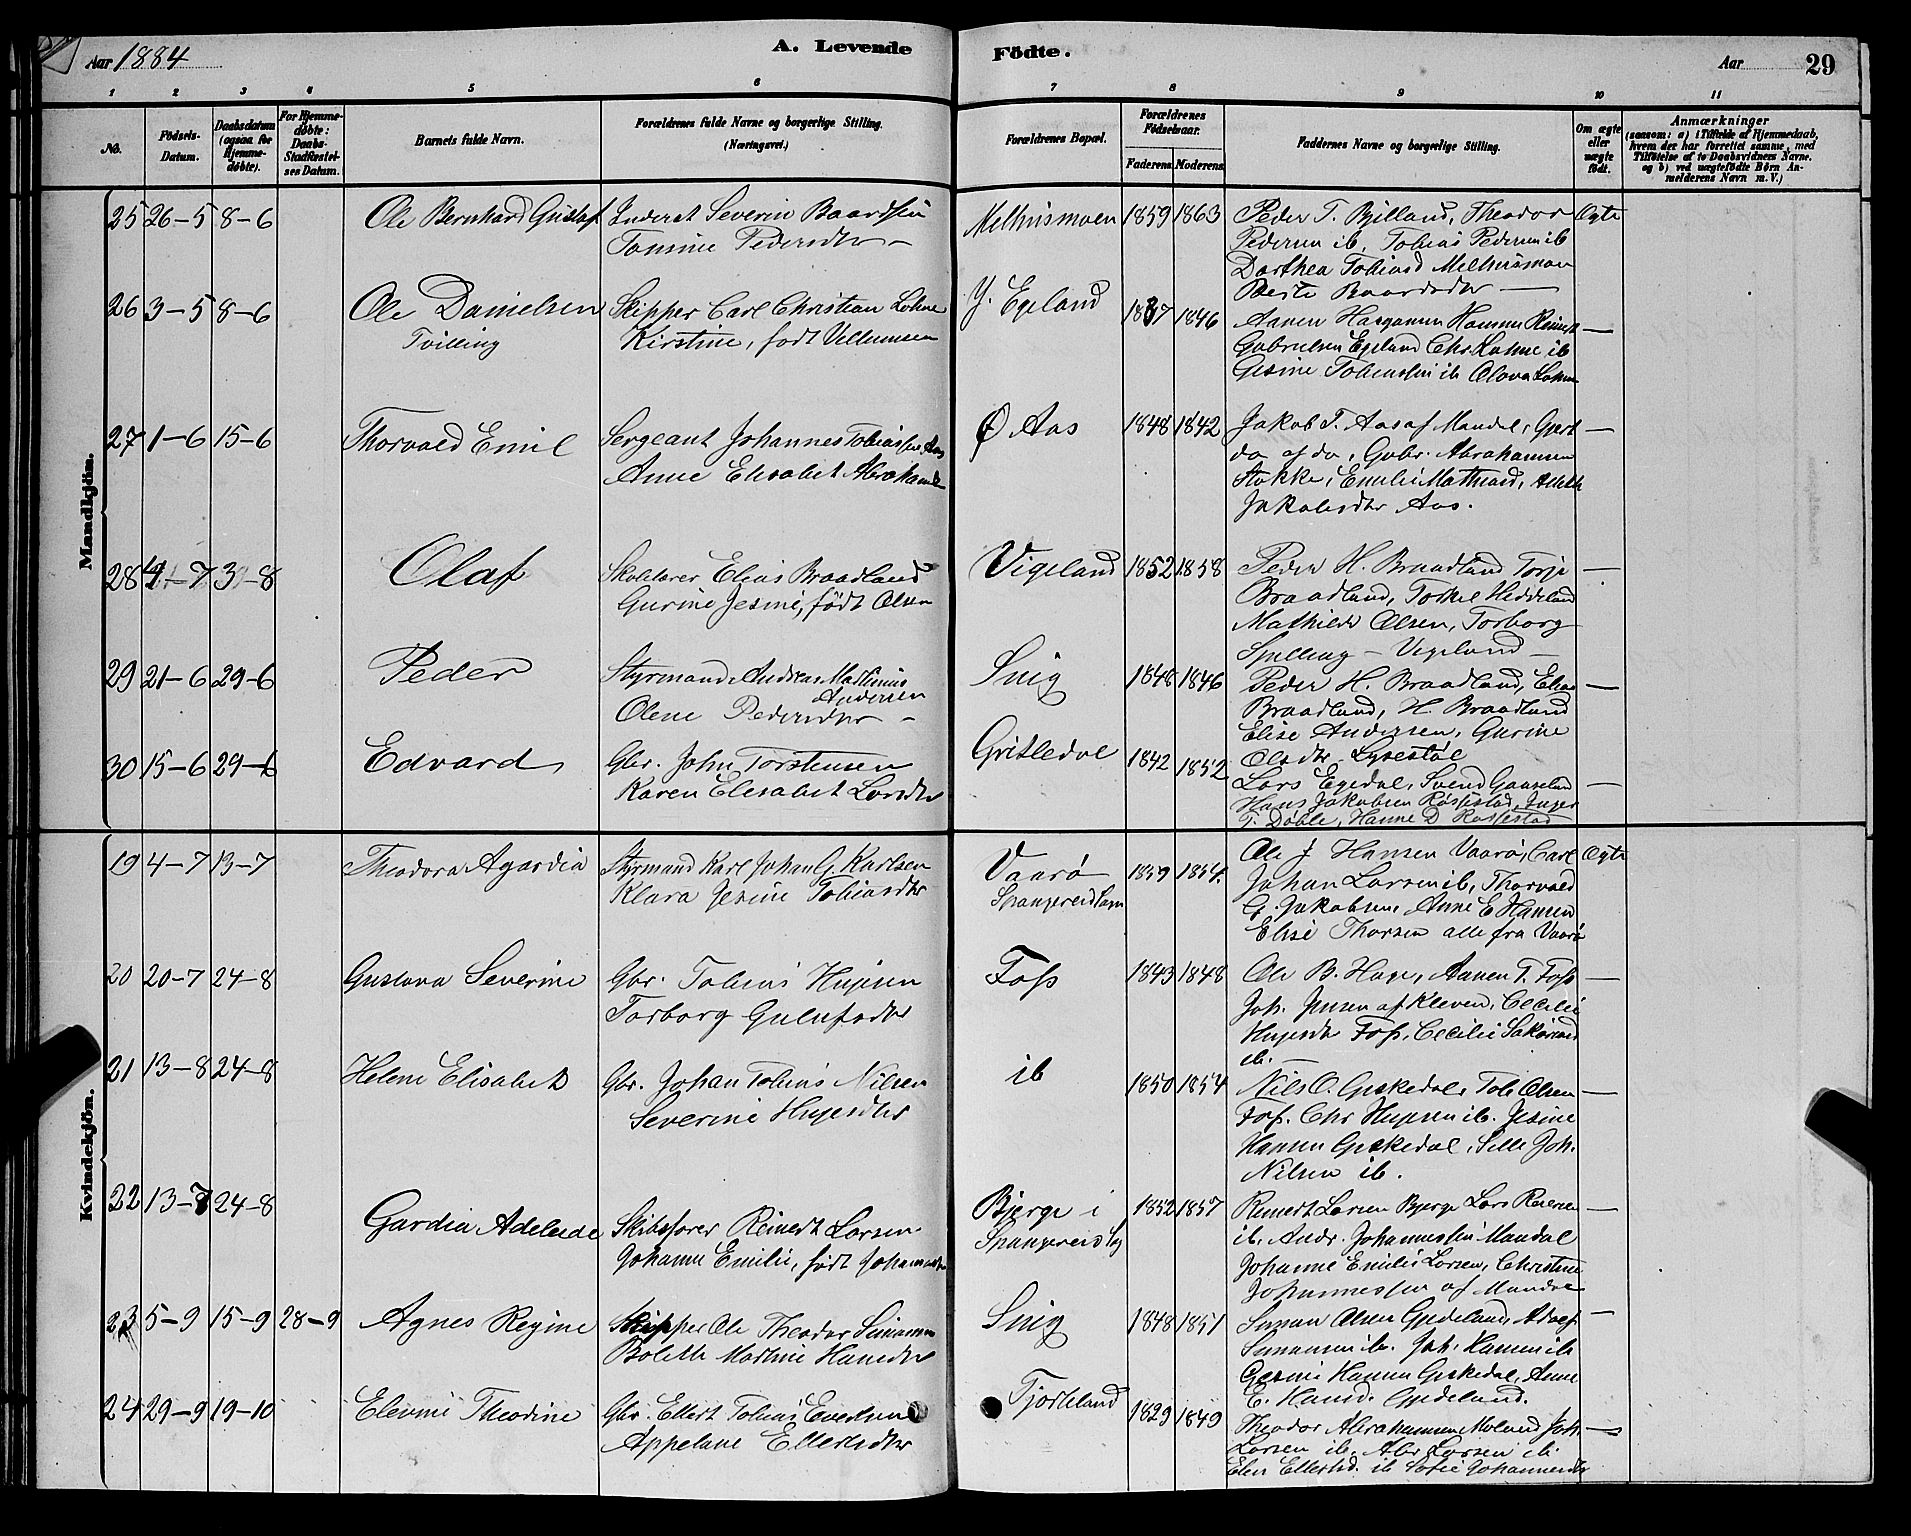 Aar 1884 A. Levende Födte. Aar 29
1 2 3 4 5 6 7 8 9 10 11
No.
Födsels-Datum.
Daabsdatum (ogsaa for Hjemme-døbte).
For Hjemme-døbte: Daabs-Stadfæstel-ses Datum.
Barnets fulde Navn.
Forældrenes fulde Navne og borgerlige Stilling. (Næringsvei.)
Forældrenes Bopæl.
Forældrenes Födselsaar.
Faderens Moderens
Faddernes Navne og borgerlige Stilling.
Om ægte eller uægte født.
Anmærkninger
(saasom: a) i Tilfælde af Hjemmedaab, hvem der har forrettet samme, med Tilføielse af to Daabsvidners Navne. og b) ved uægtefødte Børn An-melderens Navn m. V.)
Mandkjön.
25 26-5 8-6 Ole Bernhard Gustaf Inderst Severin Baardsen Melhusmoen 1859 1863 Peder T. Bjelland, Theodor Ægte
Tomine Pedersdtr - Pedersen ib, Tobias Pedersen ib
Dorthea Tobiasd Melhusmoen
Berte Baardsdtr —
26 3-5 8-6 Ole Danielsen Skipper Carl Christian Lohne Y. Egeland 1837 1846 Aanen
Tvilling Kirstine, født Villumsen Gabrielsen Egeland Chr. Lohne ib
Gesine Tobiassen ib Olava Lohne
27 1-6 15-6 Thorvald Emil Sergeant Johannes Tobiassen Aas Ø Aas 1848 1842 Jakob T. Aas af Mandal, Gjert —
Anne Elisabet Abrahamsdtr do af do, Gabr. Abrahamsen
Stokke, Emelie Mathiasd,
Jakobsdtr Aas.
28 4-7 3-8 Olaf Skolelærer Elias Braadland Vigeland 1852 1858 Peder H. Braadland Torje —
Gurine Jesine, født Olsen Braadland, Torkel Heddeland
Mathilde Olsen, Torborg
Spilling - Vigeland -
29 21-6 29-6 Peder Styrmand Andreas Mathinius Snig 1848 1846 Peder H. Braadland, Elias —
Andersen Braadland, H. Braadland
Olene Pedersdtr - Elise Andersen, Gurine
Olsdtr Lyseståel
30 15-6 29-6 Edvard Gbr. John Torstensen Gritledal 1842 1852 Lars Egedal, Svend Gaaseland —
Karen Elisabet Larsdtr Hans Jakobsen Røssestad, Inger
T. Døble, Hanne D Røssestad
Kvindekjön.
19 4-7 13-7 Theodora Agardia Styrmand Karl Johan G. Karlsen Vaarø 1859 1854. Ole J Hansen Vaarø, Carl Ægte
Klara Jesine Tobiasdtr Spangereid Sogn Johan Larsen ib, Thorvald
G. Jakobsen, Anne E Hansen
Elise Thorsen alle fra Vaarø
20 20-7 24-8 Gustava Severine Gbr. Tobias Hujesen Foss 1843 1848 Ole B. Hage, Aanen T. Foss —
Torborg Gulufsdtr Joh. Jensen af Kleven, Cecilie
Hujesdtr Foss, Cecilie Sakariasd
ib. —
21 13-8 24-8 Helene Elisabet Gbr. Johan Tobias Nilsen ib 1850 1854 Nils O. Gjeskedal, Tob. Olsen —
Severine Hujesdtr Foss. Chr Hujesen ib. Jesine
Hansen Gjeskedal, Sille Joh.
Nilsen ib.
22 13-7 24-8 Gardia Adeleide Skibsfører Reinert Larsen Bjerge i 1852 1857 Reinert Larsen Bjerge Lars —
Johanne Emilie, født Spangereid Sogn ib, Andr. Johannessen Mandal
Johanne Emilie Larsen, Christine
Johannessen af Mandal
23 5-9 15-9 28-9 Agnes Regine Skipper Ole Theodor Simonsen Snig 1848 1851 Simon Olsen Gjedeland, Adolf —
Bolette Martine Hansdtr Simonsen ib. Joh. Hansen ib
Gesine Hansen Gjeskedal, Anne
E. Hansd. Gjedeland.
24 29-9 19-10 Elevine Theodine Gbr. Ellert Tobias Evertsen Tjorteland 1829 1849 Theodor Abrahamsen Moland Joh. —
Appelane Ellertsdtr Larsen ib, Abr Larsen ib.
Elen Ellertsd. ib Sofie Johannesdtr